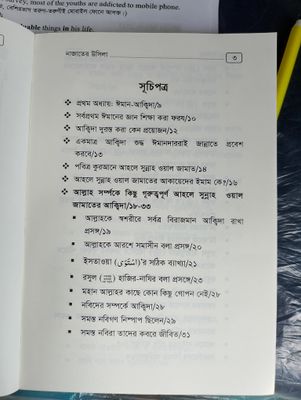 survey, most of the youths are addicted to mobile phone.
able things in his life.
নাজাতের উসিলা
৩
সূচিপত্র
❖ প্রথম অধ্যায়: ঈমান-আক্বিদা/৯
❖ সর্বপ্রথম ঈমানের জ্ঞান শিক্ষা করা ফরয/১০
❖ আক্বিদা দুরস্ত করা কেন প্রয়োজন/১২
❖ একমাত্র আক্বিদা শুদ্ধ ঈমানদাররাই জান্নাতে প্রবেশ
করবে/১৩
❖ পবিত্র কুরআনে আহলে সুন্নাহ ওয়াল জামাত/১৪
❖ আহলে সুন্নাহ ওয়াল জামাতের আকায়েদের ইমাম কে?/১৬
❖ আল্লাহ সম্পর্কে কিছু গুরুত্বপূর্ণ আহলে সুন্নাহ ওয়াল
জামাতের আক্বিদা/১৮-৩৩
▪ আল্লাহকে স্বশরীরে সর্বত্র বিরাজমান আক্বিদা রাখা
প্রসঙ্গ/১৯
▪ আল্লাহকে আরশে সমাসীন বলা প্রসঙ্গ/২০
▪ ইসতাওয়া (اسْتَوَى)'র সঠিক ব্যাখ্যা/২১
▪ রসুল (ﷺ) হাজির-নাযির বলা প্রসঙ্গে/২৩
▪ মহান আল্লাহর কাছে কোন কিছু গোপন নেই/২৮
▪ নবিদের সম্পর্কে আক্বিদা/২৮
▪ সমস্ত নবিগণ নিষ্পাপ ছিলেন/২৯
▪ সমস্ত নবিরা তাদের কবরে জীবিত/৩১